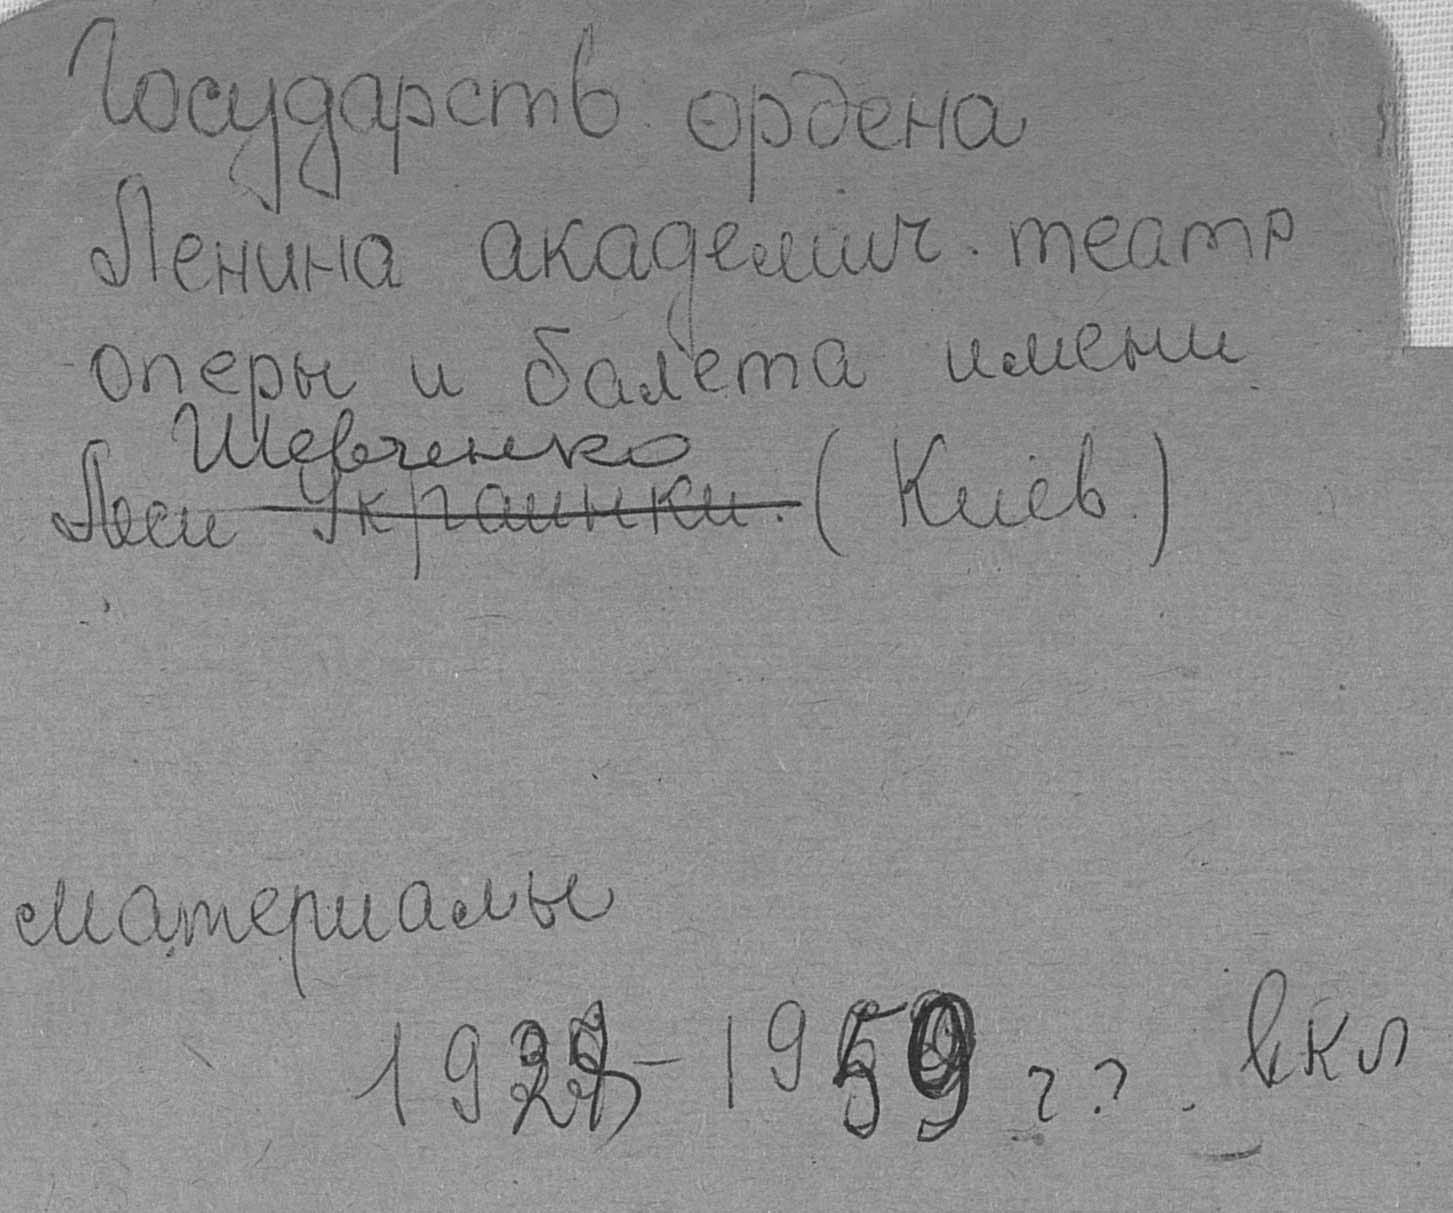 Государств ордена
Ленина академич. театр
оперы и балета имени
Шевченко
Леси Украинки. (Киев.)
материалы
1959 г.г. вкл